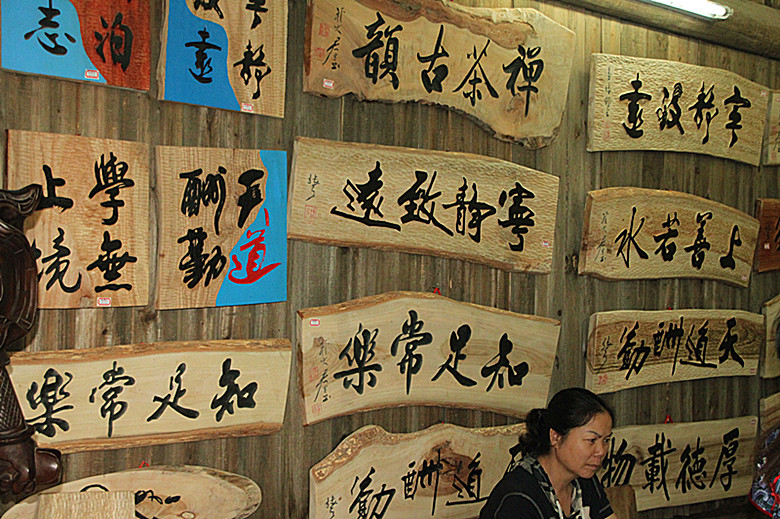 泊
志
寧靜
致遠
禪茶古韻
寧靜致遠
學無
止境
天道
酬勤
寧靜致遠
上善若水
知足常樂
知足常樂
天道酬勤
道酬勤
厚德載物